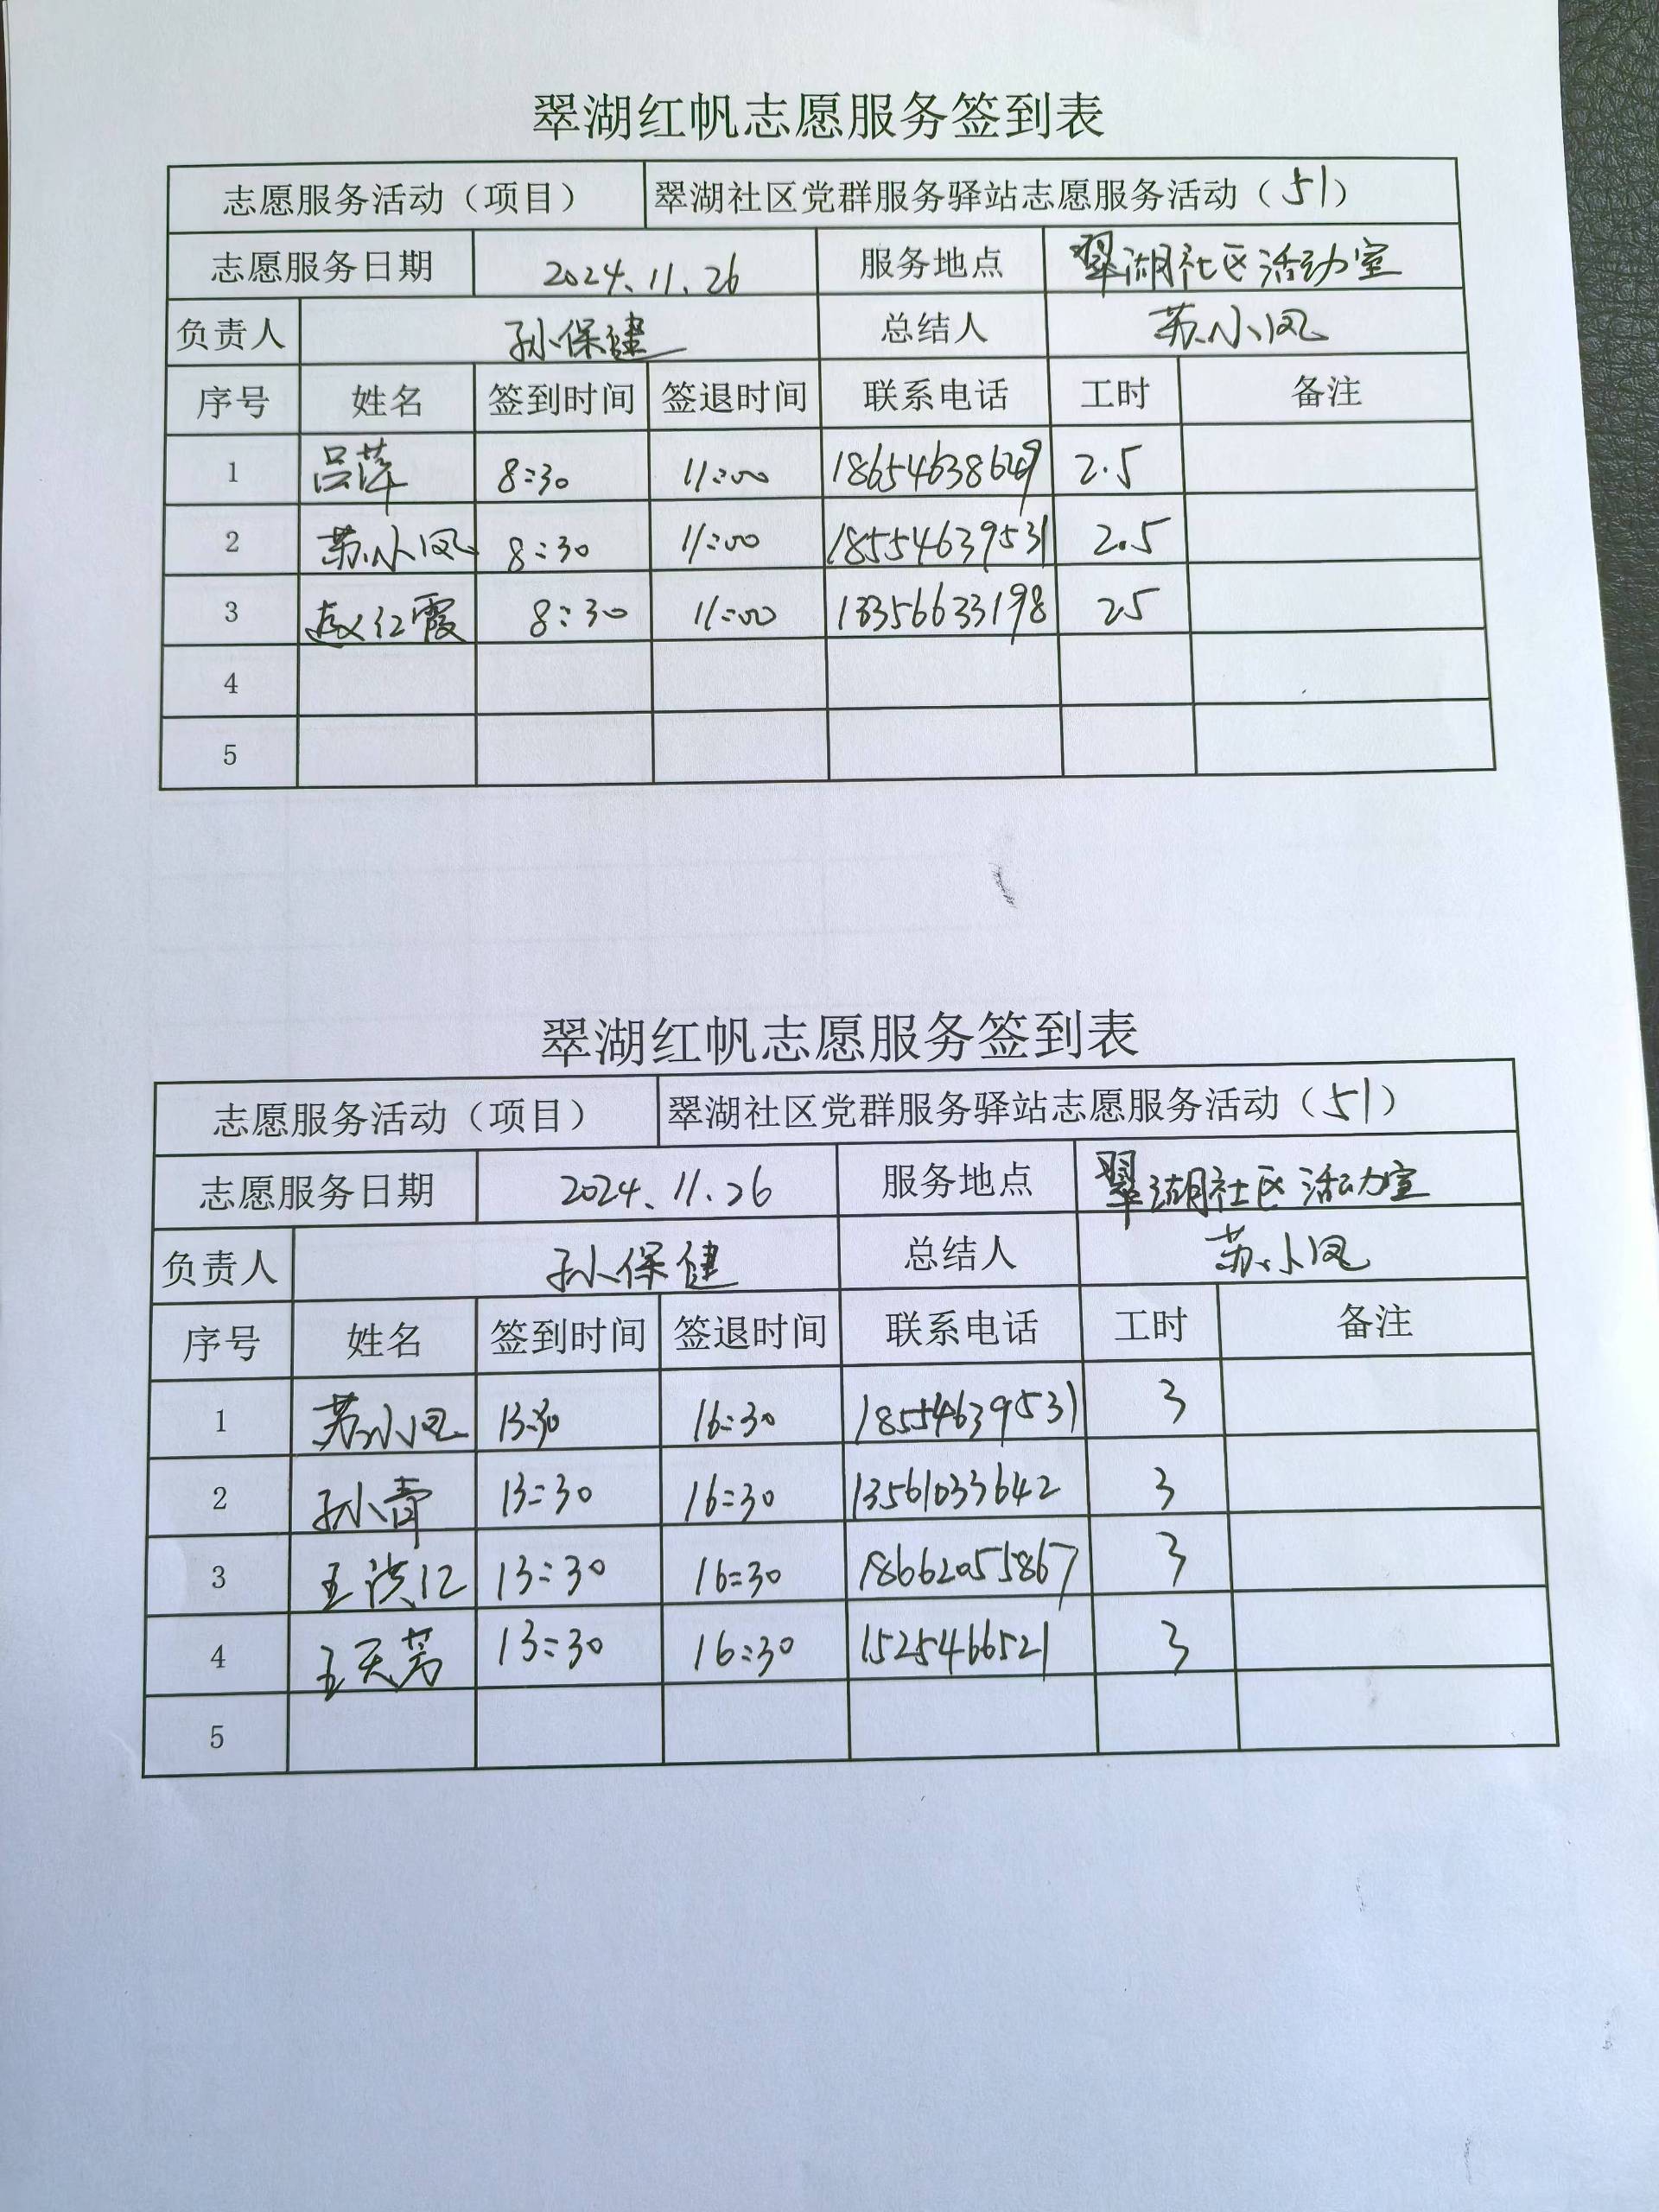 翠湖红帆志愿服务签到表
志愿服务活动（项目） 翠湖社区党群服务驿站志愿服务活动（51）
志愿服务日期 2024.11.26 服务地点 翠湖社区活动室
负责人 孙保健 总结人 苏小凤
序号 姓名 签到时间 签退时间 联系电话 工时 备注
1 吕萍 8:30 11:00 2.5
2 苏小凤 8:30 11:00 18554639531 2.5
3 赵红霞 8:30 11:00 13356633198 25
4
5
翠湖红帆志愿服务签到表
志愿服务活动（项目） 翠湖社区党群服务驿站志愿服务活动（51）
志愿服务日期 2024.11.26 服务地点 翠湖社区活动室
负责人 孙保健 总结人 苏小凤
序号 姓名 签到时间 签退时间 联系电话 工时 备注
1 苏小凤 13:30 16:30 18554639531 3
2 孙青 13:30 16:30 13561033642 3
3 13:30 16:30 18662055867 3
4 王天芳 13:30 16:30 1525466521 3
5